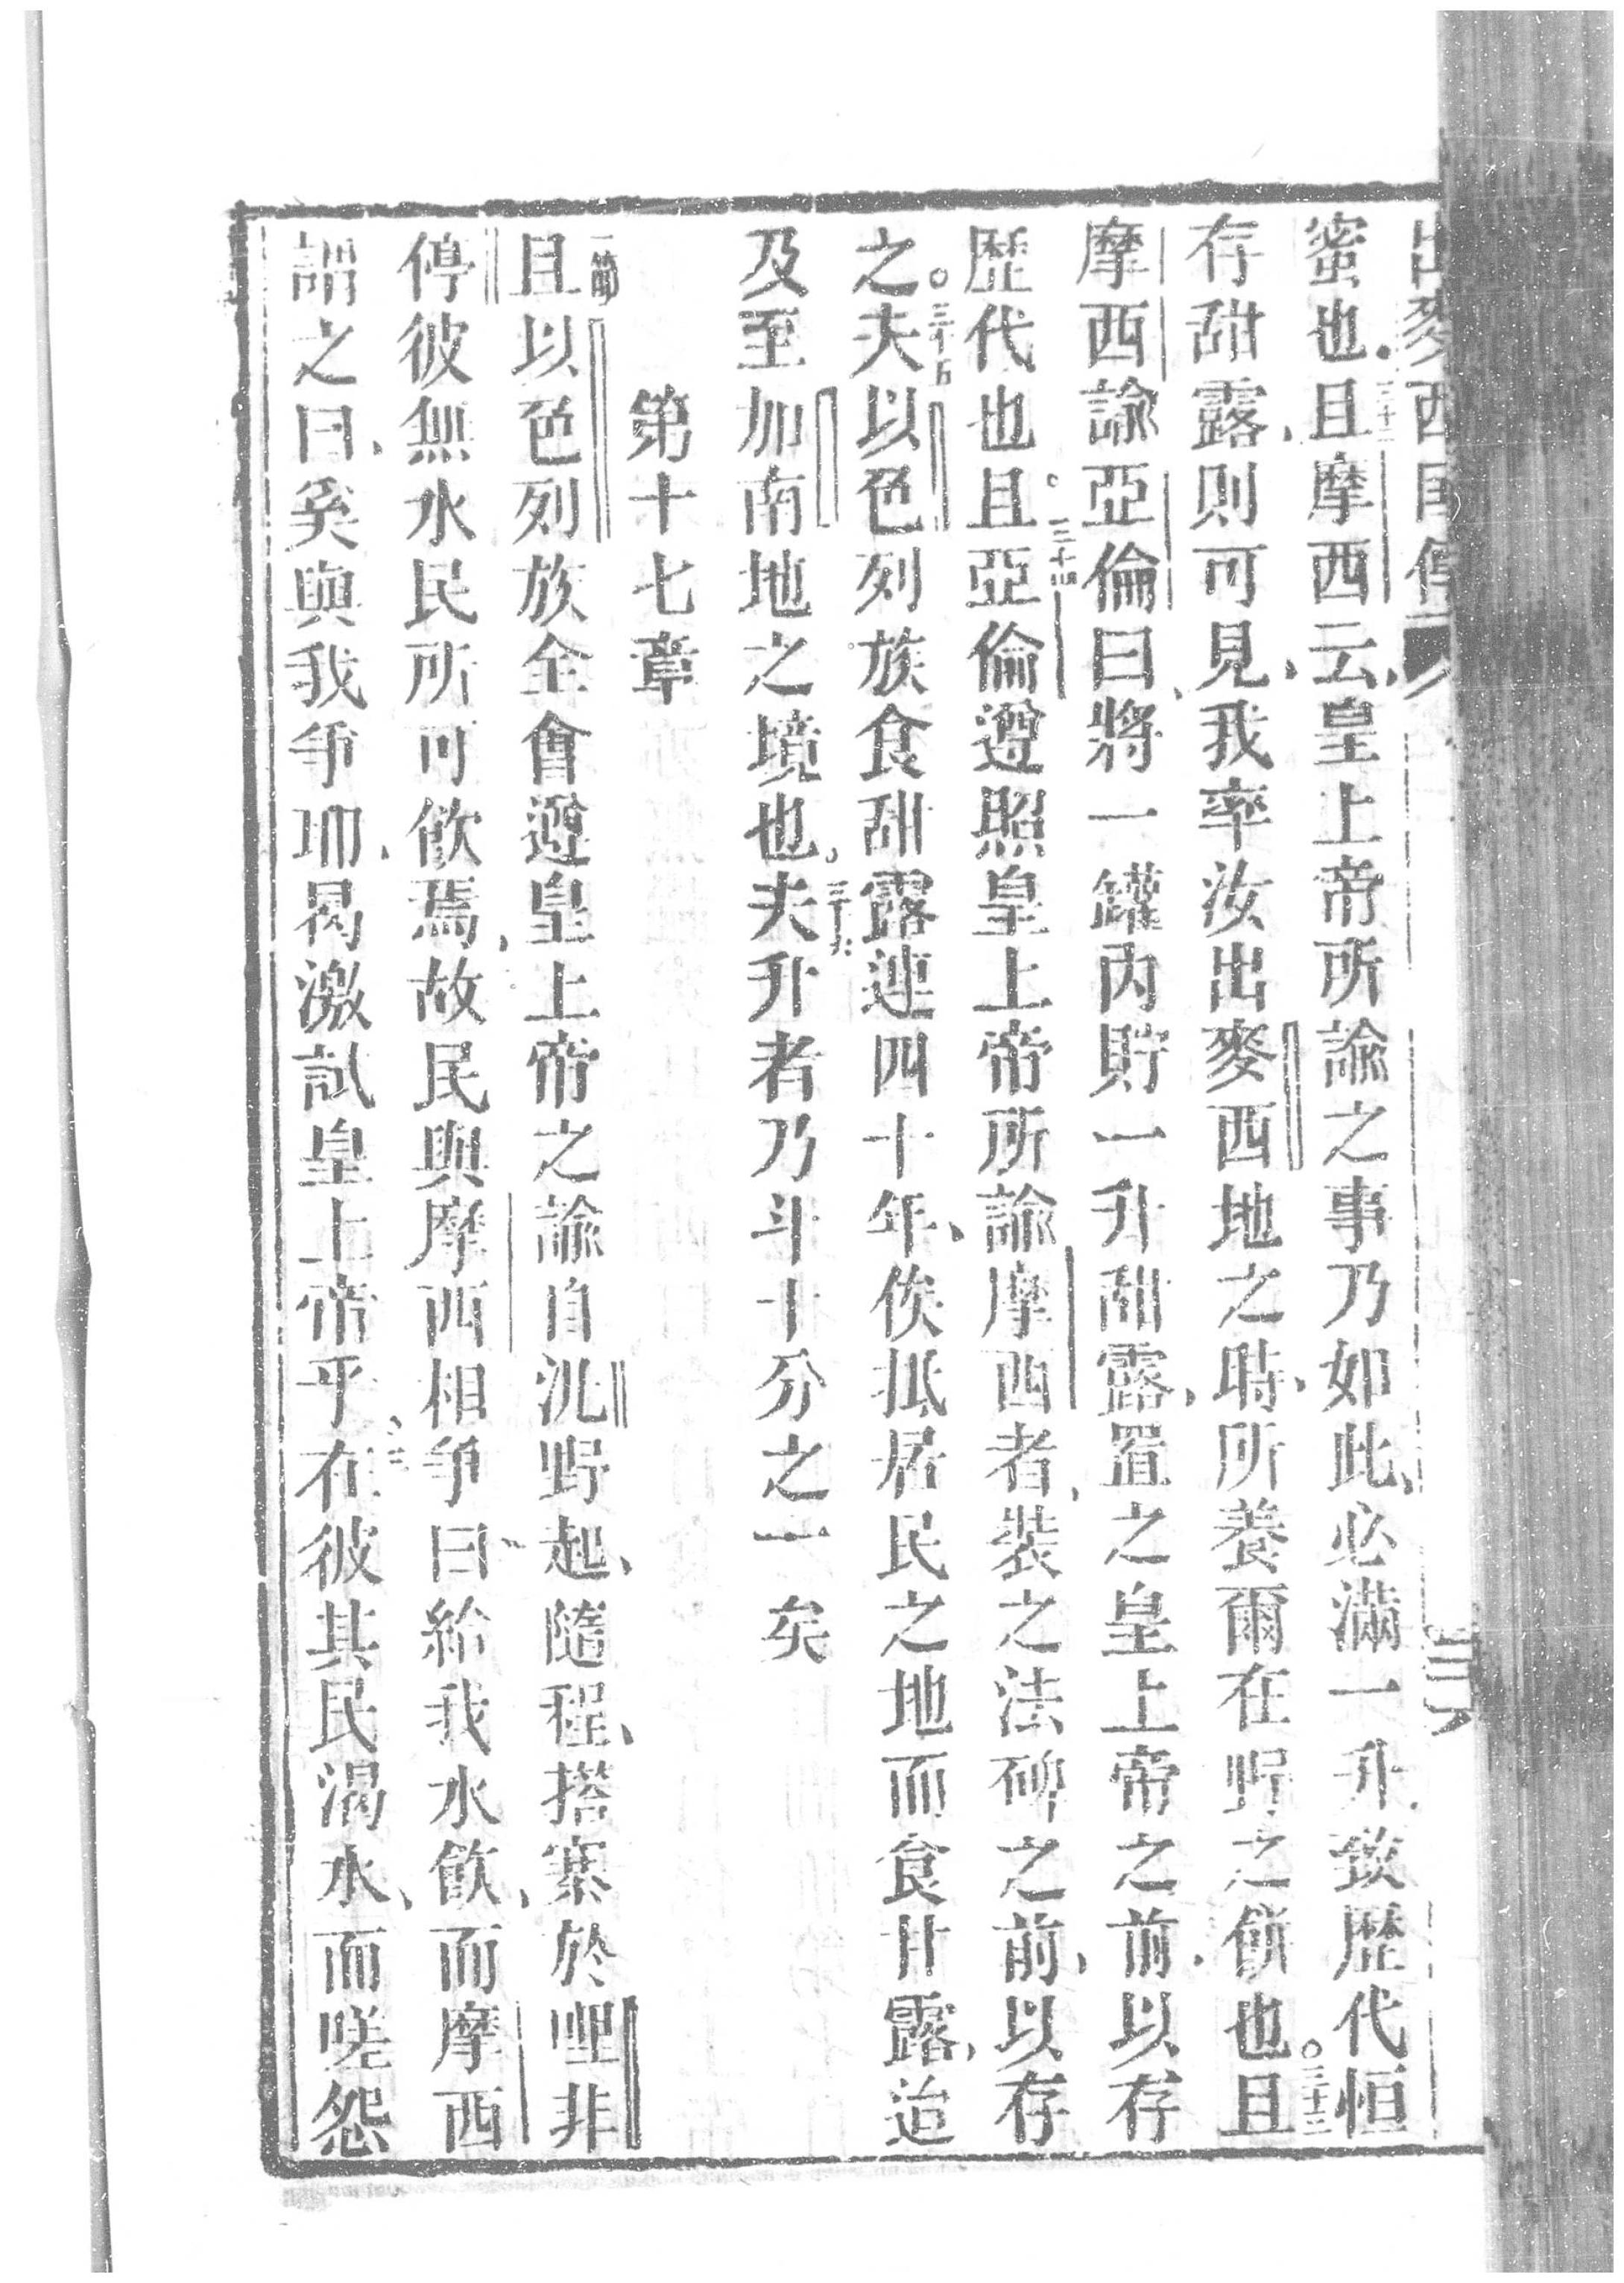 出麥西國傳
蜜也三十二且摩西云皇上帝所諭之事乃如此必滿一升致歷代恒
存甜露則可見我率汝出麥西地之時所養爾在野之餅也三十三且
摩西諭亞倫曰將一罐內貯一升甜露置之皇上帝之前以存
歷代也三十四且亞倫遵照皇上帝所諭摩西者裝之法碑之前以存
之三十五夫以色列族食甜露連四十年俟抵居民之地而食甘露迨
及至加南地之境也三十六夫升者乃斗十分之一矣
第十七章
一節且以色列族全會遵皇上帝之諭自汛野起隨程搭寨於哩非
停彼無水民所可飲焉二故民與摩西相爭曰給我水飲而摩西
謂之曰奚與我爭耶曷激試皇上帝乎三在彼其民渴水而嗟怨